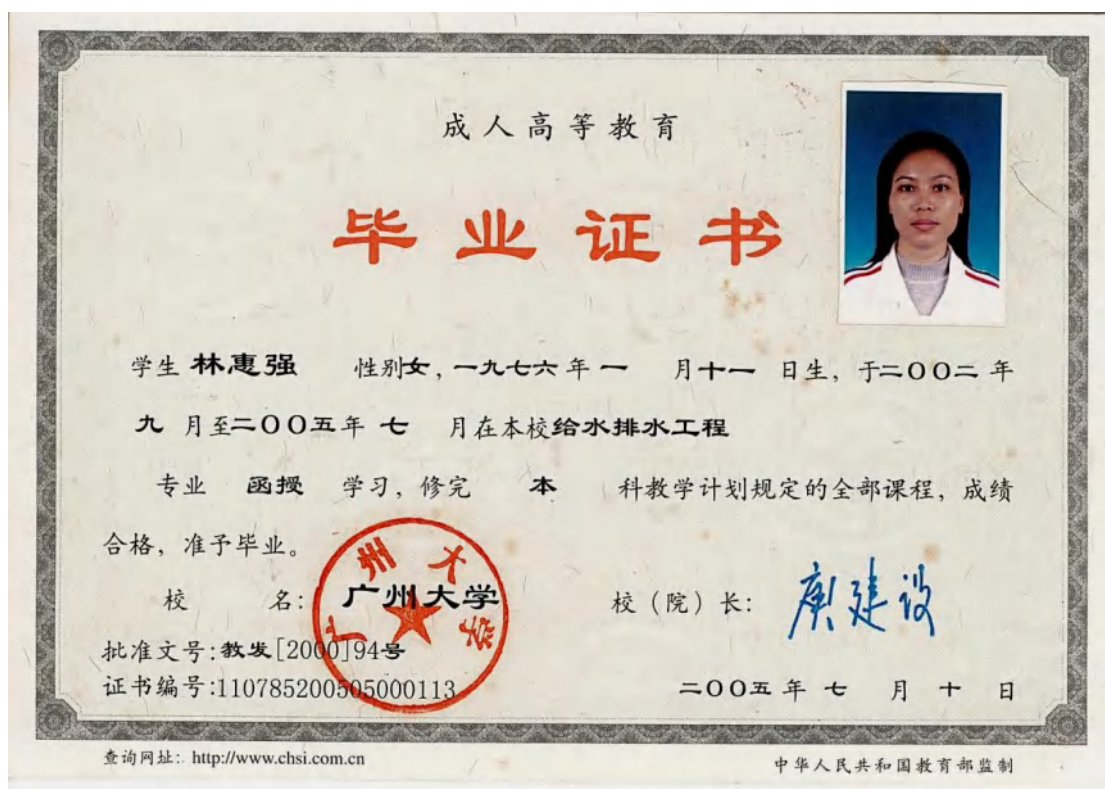 成人高等教育
毕业证书
学生 林惠强 性别女，一九七六年 一 月十一 日生，于二〇〇二 年
九 月至二〇〇五年 七 月在本校给水排水工程
专业 函授 学习，修完 本 科教学计划规定的全部课程，成绩
合格，准予毕业。
广州大学
校 名: 广州大学 校（院）长: 庾建设
批准文号:教发[2000]94号
证书编号:110785200505000113 二〇〇五 年 七 月 十 日
查询网址: http://www.chsi.com.cn 中华人民共和国教育部监制